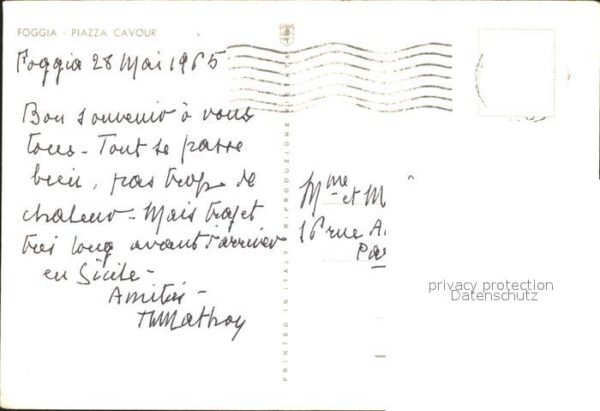 FOGGIA - PIAZZA CAVOUR
Foggia 28 Mai 1965
Bon souvenir à vous
tous - Tout se passe
bien, pas trop de
chaleur - Mais trajet
très long avant d'arriver
en Sicile -
Amitiés -
Mme et M
16 rue A.
Par
PRINTED IN ITALY RIPRODUZIONE
privacy protection
Datenschutz